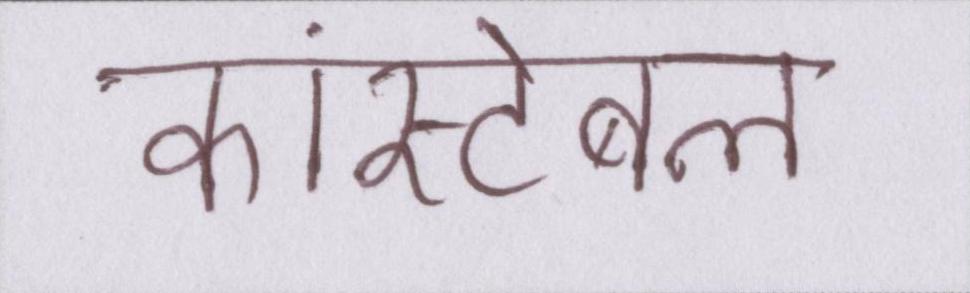 कांस्टेबल